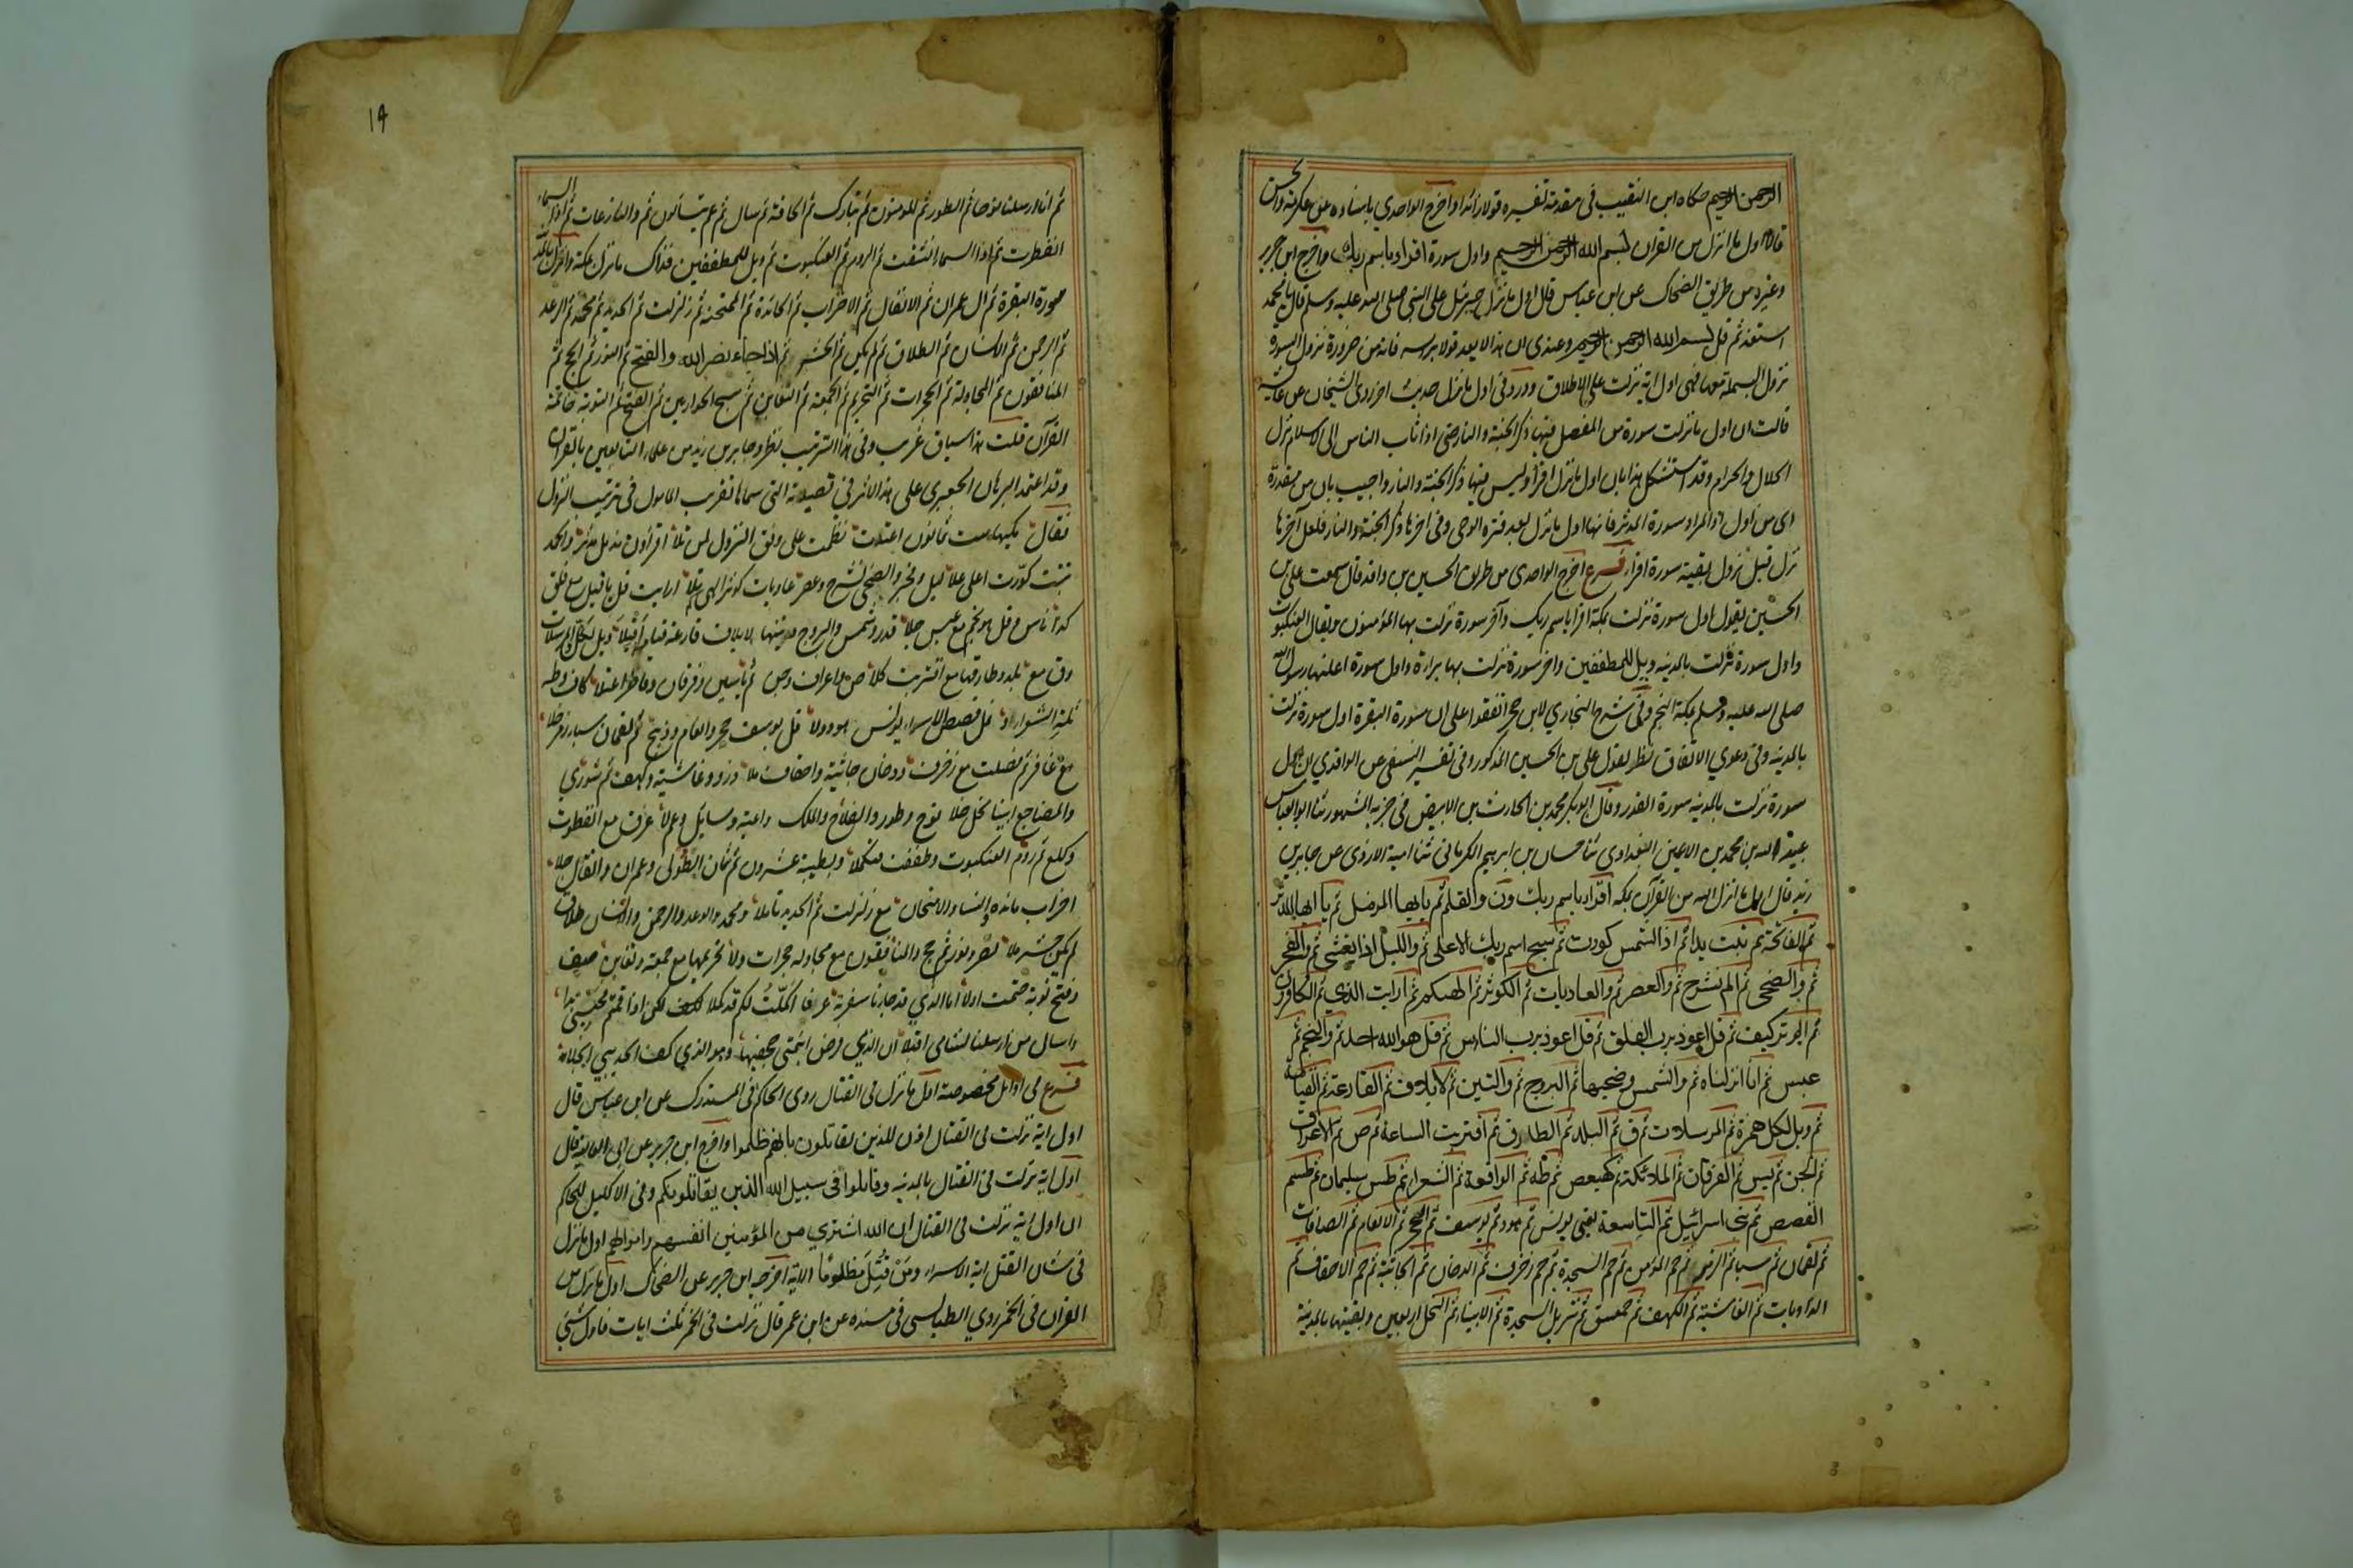 الرحمن الرحيم حكاه ابن النقيب فى مقدمة تفسيره قولا زائدا واخرج الواحدي باسناده عن عكرمة والحسن
قالا اول ما انزل من القرآن بسم الله الرحمن الرحيم واول سورة اقرا باسم ربك واخرج ابن جرير
وغيره من طريق الضحاك عن ابن عباس قال اول ما نزل جبرئيل على النبى صلى الله عليه وسلم قال يا محمد
استعذ ثم قل بسم الله الرحمن الرحيم وعندى ان هذا لا يعد قولا براسه فانه من ضرورة نزول السورة
نزول البسملة معها فهى اول اية نزلت على الاطلاق وورد فى اول ما نزل حديث اخر روى الشيخان عن عائشة
قالت ان اول ما نزلت سورة من المفصل فيها ذكر الجنة والنار حتى اذا ثاب الناس الى الاسلام نزل
الحلال والحرام وقد استشكل هذا بان اول ما نزل اقرا وليس فيها ذكر الجنة والنار واجيب بان من مقدرة
اى من اول والمراد سورة المدثر فانها اول ما نزل بعد فترة الوحى وفى اخرها ذكر الجنة والنار فلعل آخرها
نزل قبل نزول بقية سورة اقرا فرع اخرج الواحدى من طريق الحسين بن واقد قال سمعت على بن
الحسين يقول اول سورة نزلت بمكة اقرا باسم ربك وآخر سورة نزلت بها المؤمنون ويقال العنكبوت
واول سورة نزلت بالمدينه ويل للمطففين واخر سورة نزلت بها براءة واول سورة اعلنها رسول الله
صلى الله عليه وسلم بمكة النجم وفى شرح البخاري لابن حجر اتفقوا على ان سورة البقرة اول سورة نزلت
بالمدينه وفى دعوي الاتفاق نظر لقول على بن الحسين المذكور وفى تفسير النسفى عن الواقدي ان اول
سورة نزلت بالمدينه سورة القدر وقال ابو بكر محمد بن الحارث بن الابيض فى جزئه المشهور ثنا ابو العباس
عبيد الله بن محمد بن اعين البغدادى ثنا حسان بن ابرهيم الكرمانى ثنا امية الازدى عن جابر بن
زيد قال اول ما انزل الله من القرآن بمكه اقرا باسم ربك ون والقلم ثم يا ايها المزمل ثم يا ايها المدثر
ثم الفاتحة ثم تبت يدا ثم اذا الشمس كورت ثم سبح اسم ربك الاعلى ثم والليل اذا يغشى ثم والفجر
ثم والضحى ثم الم نشرح ثم والعصر ثم والعاديات ثم الكوثر ثم الهىكم ثم ارايت الذي ثم الكافرون
ثم الم تر كيف ثم قل اعوذ برب الفلق ثم قل اعوذ برب الناس ثم قل هو الله احد ثم والنجم ثم
عبس ثم انا انزلناه ثم والشمس وضحيها ثم البروج ثم والتين ثم لايلاف ثم القارعة ثم القيامة
ثم ويل لكل همزة ثم المرسلات ثم ق ثم البلد ثم الطارق ثم اقتربت الساعة ثم ص ثم الاعراف
ثم الجن ثم يس ثم الفرقان ثم الملائكة ثم كهيعص ثم طه ثم الواقعة ثم الشعراء ثم طس سليمان ثم طسم
القصص ثم بنى اسرائيل ثم التاسعة يعنى يونس ثم هود ثم يوسف ثم الحجر ثم الانعام ثم الصافات
ثم لقمان ثم سبا ثم الزمر ثم حم المؤمن ثم حم السجدة ثم حم زخرف ثم الدخان ثم الجاثية ثم حم الاحقاف ثم
الذاريات ثم الغاشية ثم الكهف ثم حمعسق ثم تنزيل السجدة ثم الانبياء ثم النحل اربعين وبقيتها بالمدينة
١٩
ثم انا ارسلنا نوحا ثم الطور ثم المومنون ثم تبارك ثم الحاقة ثم سال ثم عم يتسألون ثم والنازعات ثم اذا السماء
انفطرت ثم اذا السماء انشقت ثم الروم ثم العنكبوت ثم ويل للمطففين فذاك ما نزل بمكة وانزل بالمدينة
سورة البقرة ثم ال عمران ثم الانفال ثم الاحزاب ثم المائدة ثم الممتحنه ثم زلزلت ثم الحديد ثم محمد ثم الرعد
ثم الرحمن ثم الانسان ثم الطلاق ثم لم يكن ثم الحشر ثم اذا جاء نصر الله والفتح ثم النور ثم الحج ثم
المنافقون ثم المجادلة ثم الحجرات ثم التحريم ثم الجمعة ثم التغابن ثم سبح الحواريين ثم الفتح ثم التوبة خاتمة
القرآن قلت هذا سياق غريب وفى هذا الترتيب نظر وجابر بن زيد من علماء التابعين بالقرآن
وقد اعتمد البرهان الجعبري على هذا الاثر فى قصيدته التى سماها تقريب المامول فى ترتيب النزول
فقال مكيها ست ثمانون اعتلت نظمت على وفق النزول لمن تلا اقرا ون مزمل مدثر والحمد
تبت كورت اعلى علا ليل وفجر والضحى شرح وعصر عاديات كوثر الهى تلا ارايت قل يا فيل مع فلق
كذا ناس وقل هو نجم مع عبس جلا قدر وشمس والبروج وتينها لايلاف قارعة قيامة اقبلا ويل لكل المرسلات
وق مع بلد وطارقها مع اقتربت كلا ص واعراف وجن ثم ياسين وفرقان وفاطر اعتلا كاف وطه
ثلة الشعراء و نمل قصص الاسراء يونس هود ولا قل يوسف حجر وانعام وذبح ثم لقمان سبا زمر خلا
مع غافر ثم فصلت مع زخرف ودخان جاثية واحقاف تلا ذرو وغاشية وكهف ثم شوري
والمضاجع انبيا نحل حلا نوح وطور والفلاح والملك واعية وسايل وعم لا غرق مع انفطرت
وكلع ثم روم العنكبوت وطففت فتكملا وبطيبة عشرون ثم ثمان الطولى وعمران وانفال جلا
احزاب مائدة والنسا والامتحان مع زلزلت ثم الحديد تاملا ومحمد والرعد والرحمن والانسان طلاق
لم يكن حشر ملا نصر ونور ثم حج والمنافقون مع مجادلة حجرات ولا تحريمها مع جمعة وتغابن صف
وفتح توبة ختمت اولا اما الذي قد جاءنا سفرية عرفا اكملت لكم قد كملا لكن اذا قمتم
واسال من ارسلنا لشامى اقبلا ان الذي فرض انتمى جحفيها وهو الذي كف الحديبي انجلا
فرع فى اوائل مخصوصة اول ما نزل فى القتال روى الحاكم فى المستدرك عن ابن عباس قال
اول اية نزلت فى القتال اذن للذين يقاتلون بانهم ظلموا واخرج ابن جرير عن ابى العالية قال
اول اية نزلت فى القتال بالمدينه وقاتلوا فى سبيل الله الذين يقاتلونكم وفى الاكليل للحاكم
ان اول اية نزلت فى القتال ان الله اشتري من المؤمنين انفسهم واموالهم اول ما نزل
فى شان القتل اية الاسراء ومن قتل مظلوما الاية اخرجه ابن جرير عن الضحاك اول ما نزل من
القران فى الخمر روي الطيالسى فى مسنده عن ابن عمر قال نزلت فى الخمر ثلث ايات فاول شئ